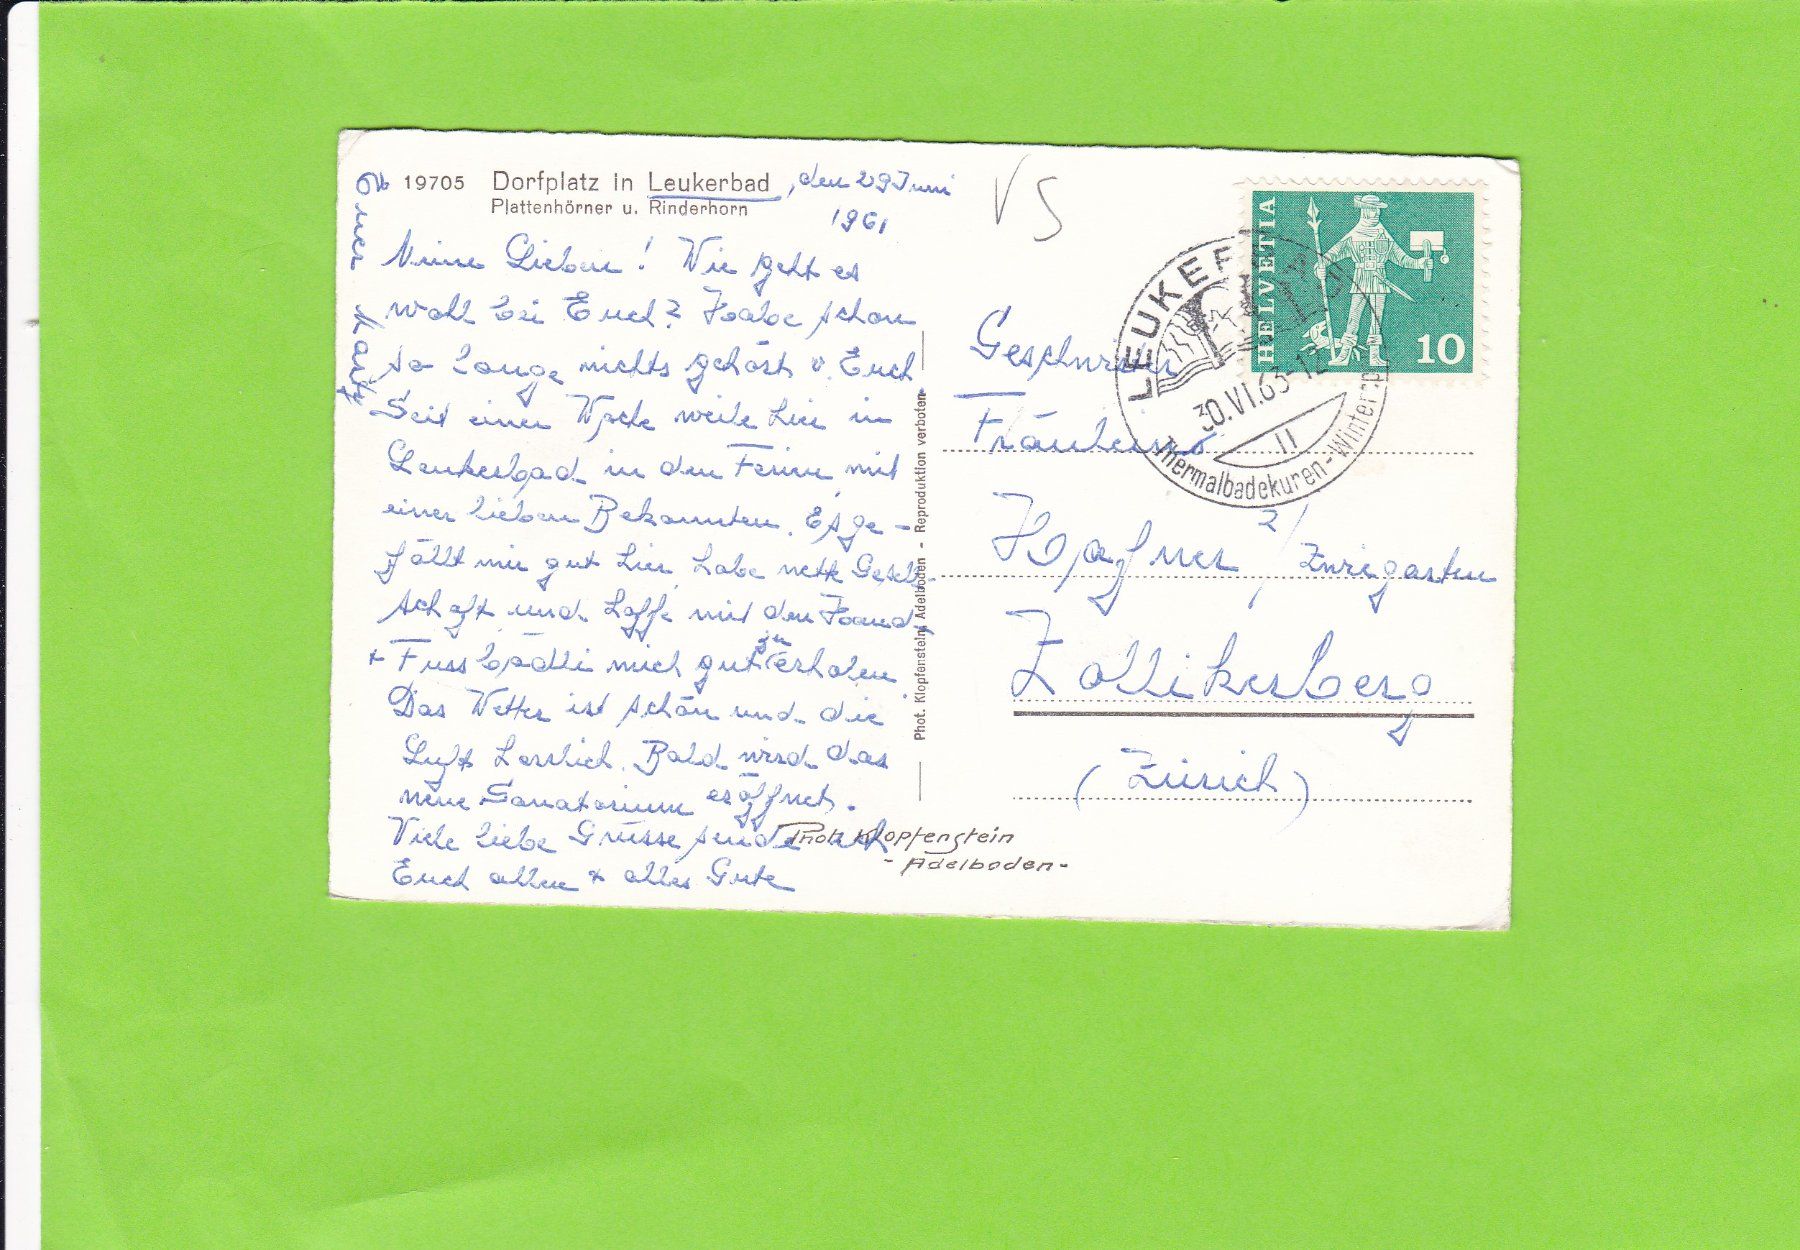 19705 Dorfplatz in Leukerbad, den 29 Juni
Plattenhörner u. Rinderhorn
1961
Meine Lieben! Wie geht es
wohl bei Euch? Habe schon
so lange nichts gehört v. Euch
Seit einer Woche weile hier in
Leukerbad in den Ferien mit
einer lieben Bekannten. Es ge-
fällt mir gut hier, habe nette Gesell-
schaft und hoffe mit den Hand-
+ Fussbädli mich gut zu erholen.
Das Wetter ist schön und die
Luft herrlich. Bald wird das
neue Sanatorium eröffnet.
Viele liebe Grüsse sende ich
Euch allen + alles Gute
Euer
Phot. Klopfenstein, Adelboden - Reproduktion verboten
Phot. Klopfenstein
- Adelboden -
VS
HELVETIA
10
LEUKERBAD
30.VI.63-12
II
Thermalbadekuren-Wintersp
Geschwister
Fräuleins
Hafner 2/ Zwiegarten
Zollikerberg
(Zürich)